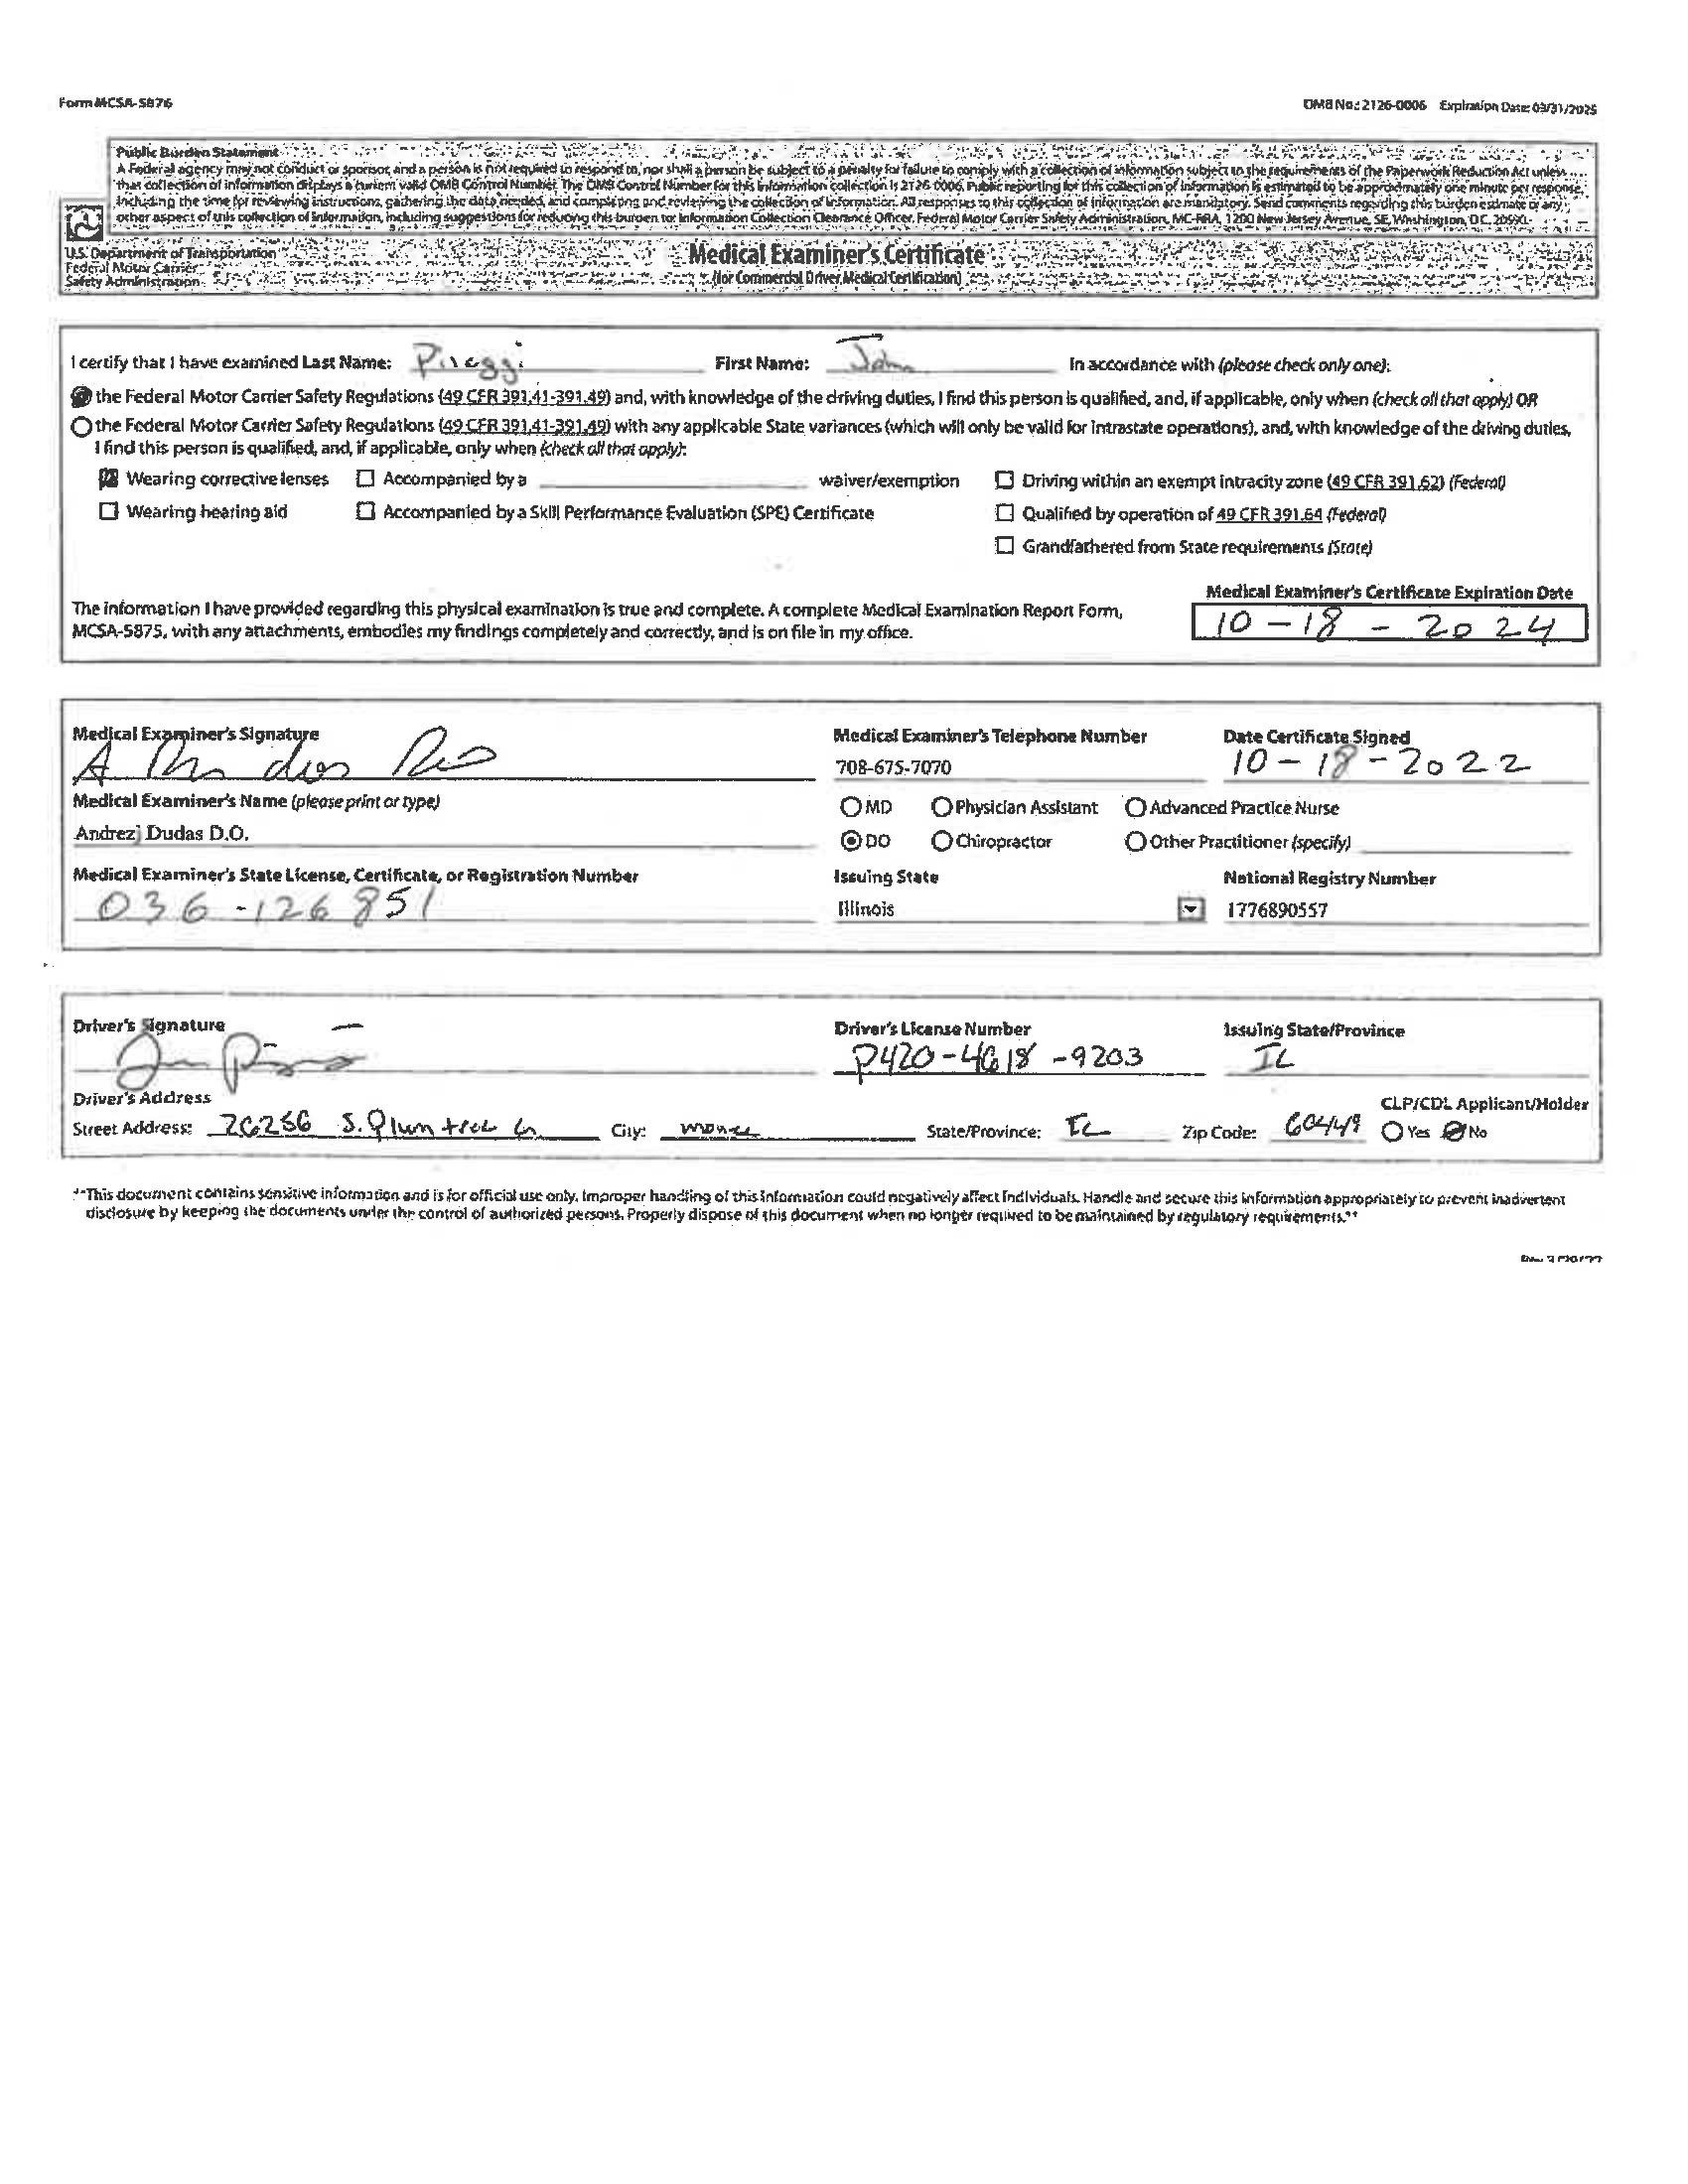 Form MCSA-5876
OMB No.: 2126-0006 Expiration Date: 03/31/2025
Public Burden Statement
A Federal agency may not conduct or sponsor, and a person is not required to respond to, nor shall a person be subject to a penalty for failure to comply with a collection of information subject to the requirements of the Paperwork Reduction Act unless
that collection of information displays a current valid OMB Control Number. The OMB Control Number for this information collection is 2126-0006. Public reporting for this collection of information is estimated to be approximately one minute per response,
including the time for reviewing instructions, gathering the data needed, and completing and reviewing the collection of information. All responses to this collection of information are mandatory. Send comments regarding this burden estimate or any
other aspect of this collection of information, including suggestions for reducing this burden to: Information Collection Clearance Officer, Federal Motor Carrier Safety Administration, MC-RRA, 1200 New Jersey Avenue, SE, Washington, DC. 20590.
U.S. Department of Transportation
Federal Motor Carrier
Safety Administration
Medical Examiner's Certificate
(for Commercial Driver Medical Certification)
I certify that I have examined Last Name: First Name: John In accordance with (please check only one):
the Federal Motor Carrier Safety Regulations (49 CFR 391.41-391.49) and, with knowledge of the driving duties, I find this person is qualified, and, if applicable, only when (check all that apply) OR
the Federal Motor Carrier Safety Regulations (49 CFR 391.41-391.49) with any applicable State variances (which will only be valid for intrastate operations), and, with knowledge of the driving duties,
I find this person is qualified, and, if applicable, only when (check all that apply):
Wearing corrective lenses Accompanied by a waiver/exemption Driving within an exempt intracity zone (49 CFR 391.62) (Federal)
Wearing hearing aid Accompanied by a Skill Performance Evaluation (SPE) Certificate Qualified by operation of 49 CFR 391.64 (Federal)
Grandfathered from State requirements (State)
Medical Examiner's Certificate Expiration Date
The information I have provided regarding this physical examination is true and complete. A complete Medical Examination Report Form,
MCSA-5875, with any attachments, embodies my findings completely and correctly, and is on file in my office.
10-18-2024
Medical Examiner's Signature Medical Examiner's Telephone Number Date Certificate Signed
708-675-7070 10-18-2022
Medical Examiner's Name (please print or type) MD Physician Assistant Advanced Practice Nurse
Andrezj Dudas D.O. DO Chiropractor Other Practitioner (specify)
Medical Examiner's State License, Certificate, or Registration Number Issuing State National Registry Number
036-126851 Illinois 1776890557
Driver's Signature Driver's License Number Issuing State/Province
IL
Driver's Address CLP/CDL Applicant/Holder
Street Address: S. Plum tree City: Monee State/Province: IL Zip Code: 60449 Yes No
**This document contains sensitive information and is for official use only. Improper handling of this information could negatively affect individuals. Handle and secure this information appropriately to prevent inadvertent
disclosure by keeping the documents under the control of authorized persons. Properly dispose of this document when no longer required to be maintained by regulatory requirements.**